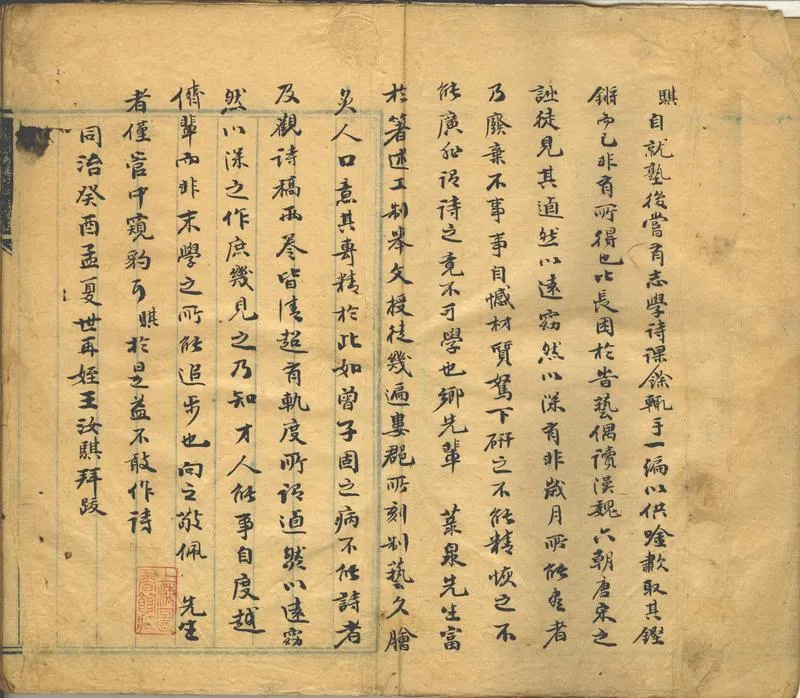 騏自就塾後嘗有志學詩課餘輒手一編以供唫歗取其鏗
鏘而已非有所得也比長困於告藝偶讀漢魏六朝唐宋之
詠徒見其逌然以遠窈然以深有非歲月所能盡者
乃廢棄不事事自憾材質駑下研之不能精恢之不
能廣殆謂詩之竟不可學也鄉先輩 菉泉先生富
於箸述工制举文授徒幾遍婁郡所刻制藝久膾
炙人口意其專精於此如曾子固之病不能詩者
及觀詩稿兩卷皆清超有軌度所謂逌然以遠窈
然以深之作庶幾見之乃知才人能事自度越
儕輩而非末學之所能追步也向之敬佩 先生
者僅管中窺豹耳騏於是益不敢作詩
同治癸酉孟夏世再姪王汝騏拜跋